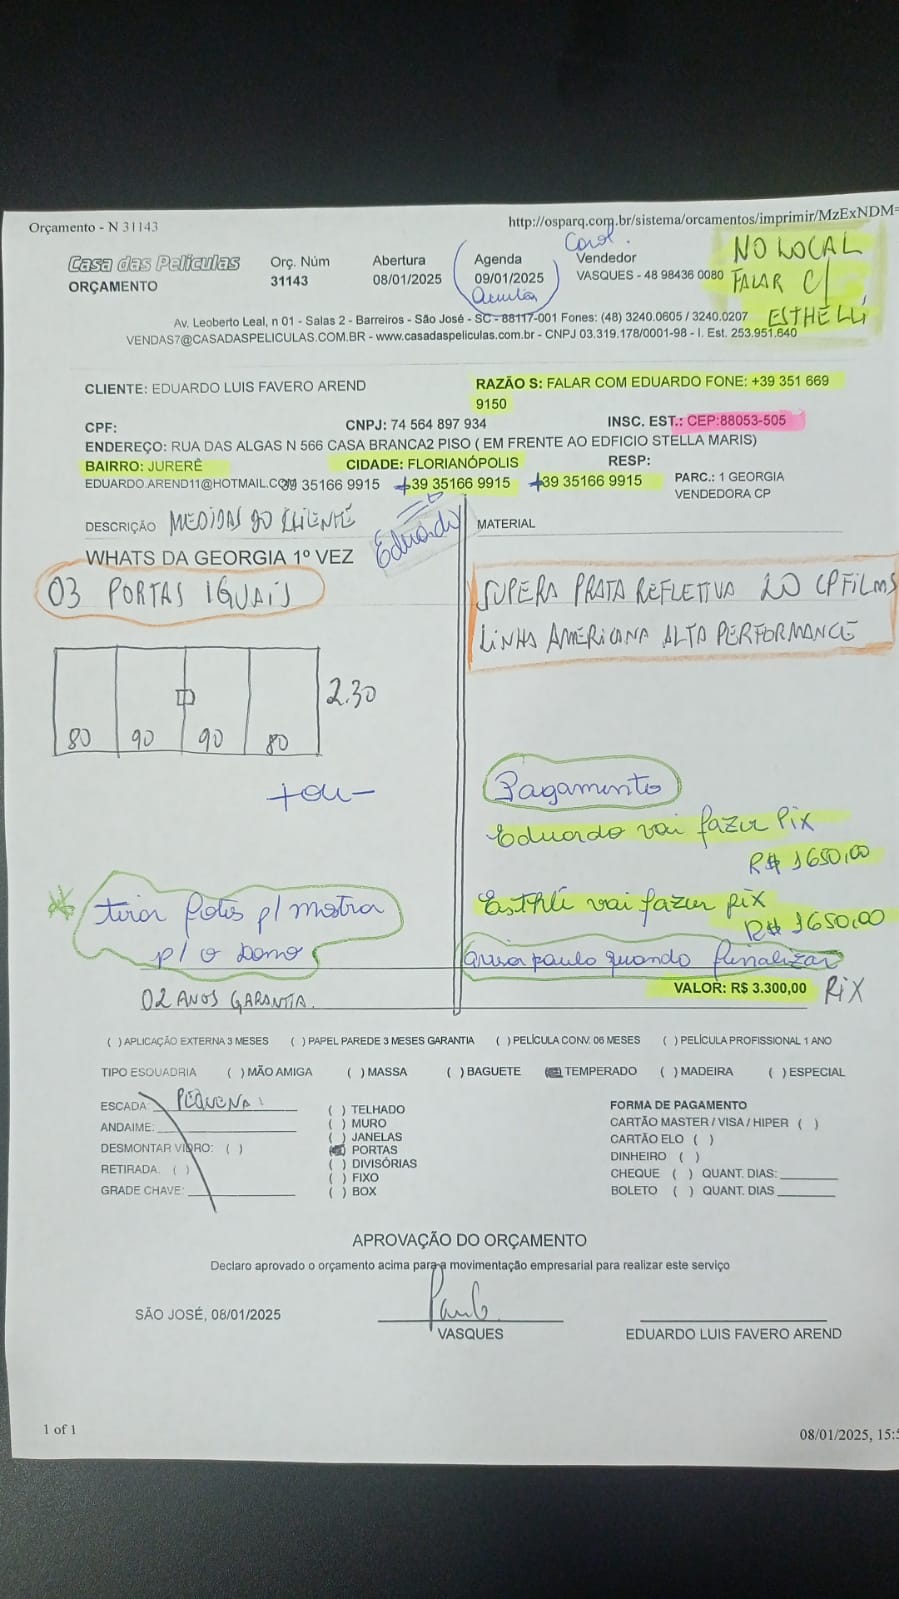 Orçamento - N 31143
http://osparq.com.br/sistema/orcamentos/imprimir/MzExNDM=
Casa das Películas
ORÇAMENTO
Orç. Núm
31143
Abertura
08/01/2025
Agenda
09/01/2025
Carol.
Vendedor
VASQUES - 48 98436 0080
NO LOCAL
FALAR C/
ESTHELLÍ
Av. Leoberto Leal, n 01 - Salas 2 - Barreiros - São José - SC - 88117-001 Fones: (48) 3240.0605 / 3240.0207
VENDAS7@CASADASPELICULAS.COM.BR - www.casadaspeliculas.com.br - CNPJ 03.319.178/0001-98 - I. Est. 253.951.640
CLIENTE: EDUARDO LUIS FAVERO AREND
RAZÃO S: FALAR COM EDUARDO FONE: +39 351 669
9150
CPF:
CNPJ: 74 564 897 934
INSC. EST.: CEP:88053-505
ENDEREÇO: RUA DAS ALGAS N 566 CASA BRANCA2 PISO ( EM FRENTE AO EDFICIO STELLA MARIS)
BAIRRO: JURERÊ
CIDADE: FLORIANÓPOLIS
RESP:
EDUARDO.AREND11@HOTMAIL.COM
39 35166 9915
+39 35166 9915
+39 35166 9915
PARC.: 1 GEORGIA
VENDEDORA CP
DESCRIÇÃO MEDIDAS DO CLIENTE
Eduardo
MATERIAL
WHATS DA GEORGIA 1º VEZ
03 PORTAS IGUAIS
SUPERA PRATA REFLETIVA 20 CPFILMS
LINHA AMERICANA ALTA PERFORMANCE
2.30
80 90 90 80
+ou-
Pagamento
Eduardo vai fazer Pix
R$ 1650,00
* tirar fotos p/ mostra
p/ o Dono
Esthlé vai fazer pix
R$ 1650,00
Avisa paulo quando finalizar
VALOR: R$ 3.300,00 PIX
02 ANOS GARANTIA.
( ) APLICAÇÃO EXTERNA 3 MESES ( ) PAPEL PAREDE 3 MESES GARANTIA ( ) PELÍCULA CONV. 06 MESES ( ) PELÍCULA PROFISSIONAL 1 ANO
TIPO ESQUADRIA ( ) MÃO AMIGA ( ) MASSA ( ) BAGUETE ( ) TEMPERADO ( ) MADEIRA ( ) ESPECIAL
ESCADA: PEQUENA
ANDAIME:
DESMONTAR VIDRO: ( )
RETIRADA: ( )
GRADE CHAVE:
( ) TELHADO
( ) MURO
( ) JANELAS
( ) PORTAS
( ) DIVISÓRIAS
( ) FIXO
( ) BOX
FORMA DE PAGAMENTO
CARTÃO MASTER / VISA / HIPER ( )
CARTÃO ELO ( )
DINHEIRO ( )
CHEQUE ( ) QUANT. DIAS:
BOLETO ( ) QUANT. DIAS
APROVAÇÃO DO ORÇAMENTO
Declaro aprovado o orçamento acima para a movimentação empresarial para realizar este serviço
SÃO JOSÉ, 08/01/2025
Paulo
VASQUES
EDUARDO LUIS FAVERO AREND
1 of 1
08/01/2025, 15:5